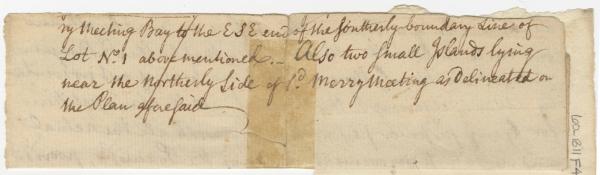 ry Meeting Bay to the ESE end of the Southerly boundary Line of
Lot No. 1 above mentioned. — Also two Small Islands lying
near the Northerly Side of sd. Merrymeeting as Delineated on
the Plan aforesaid